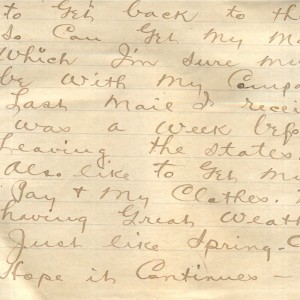 to Get back to th
So Can Get My Ma
Which I'm sure mu
be With My Compa
Last Mail I recei
was a week befo
Leaving the states.
Also like to Get my
Pay & My Clothes.
having Great Weath
Just like Spring -
Hope it Continues -